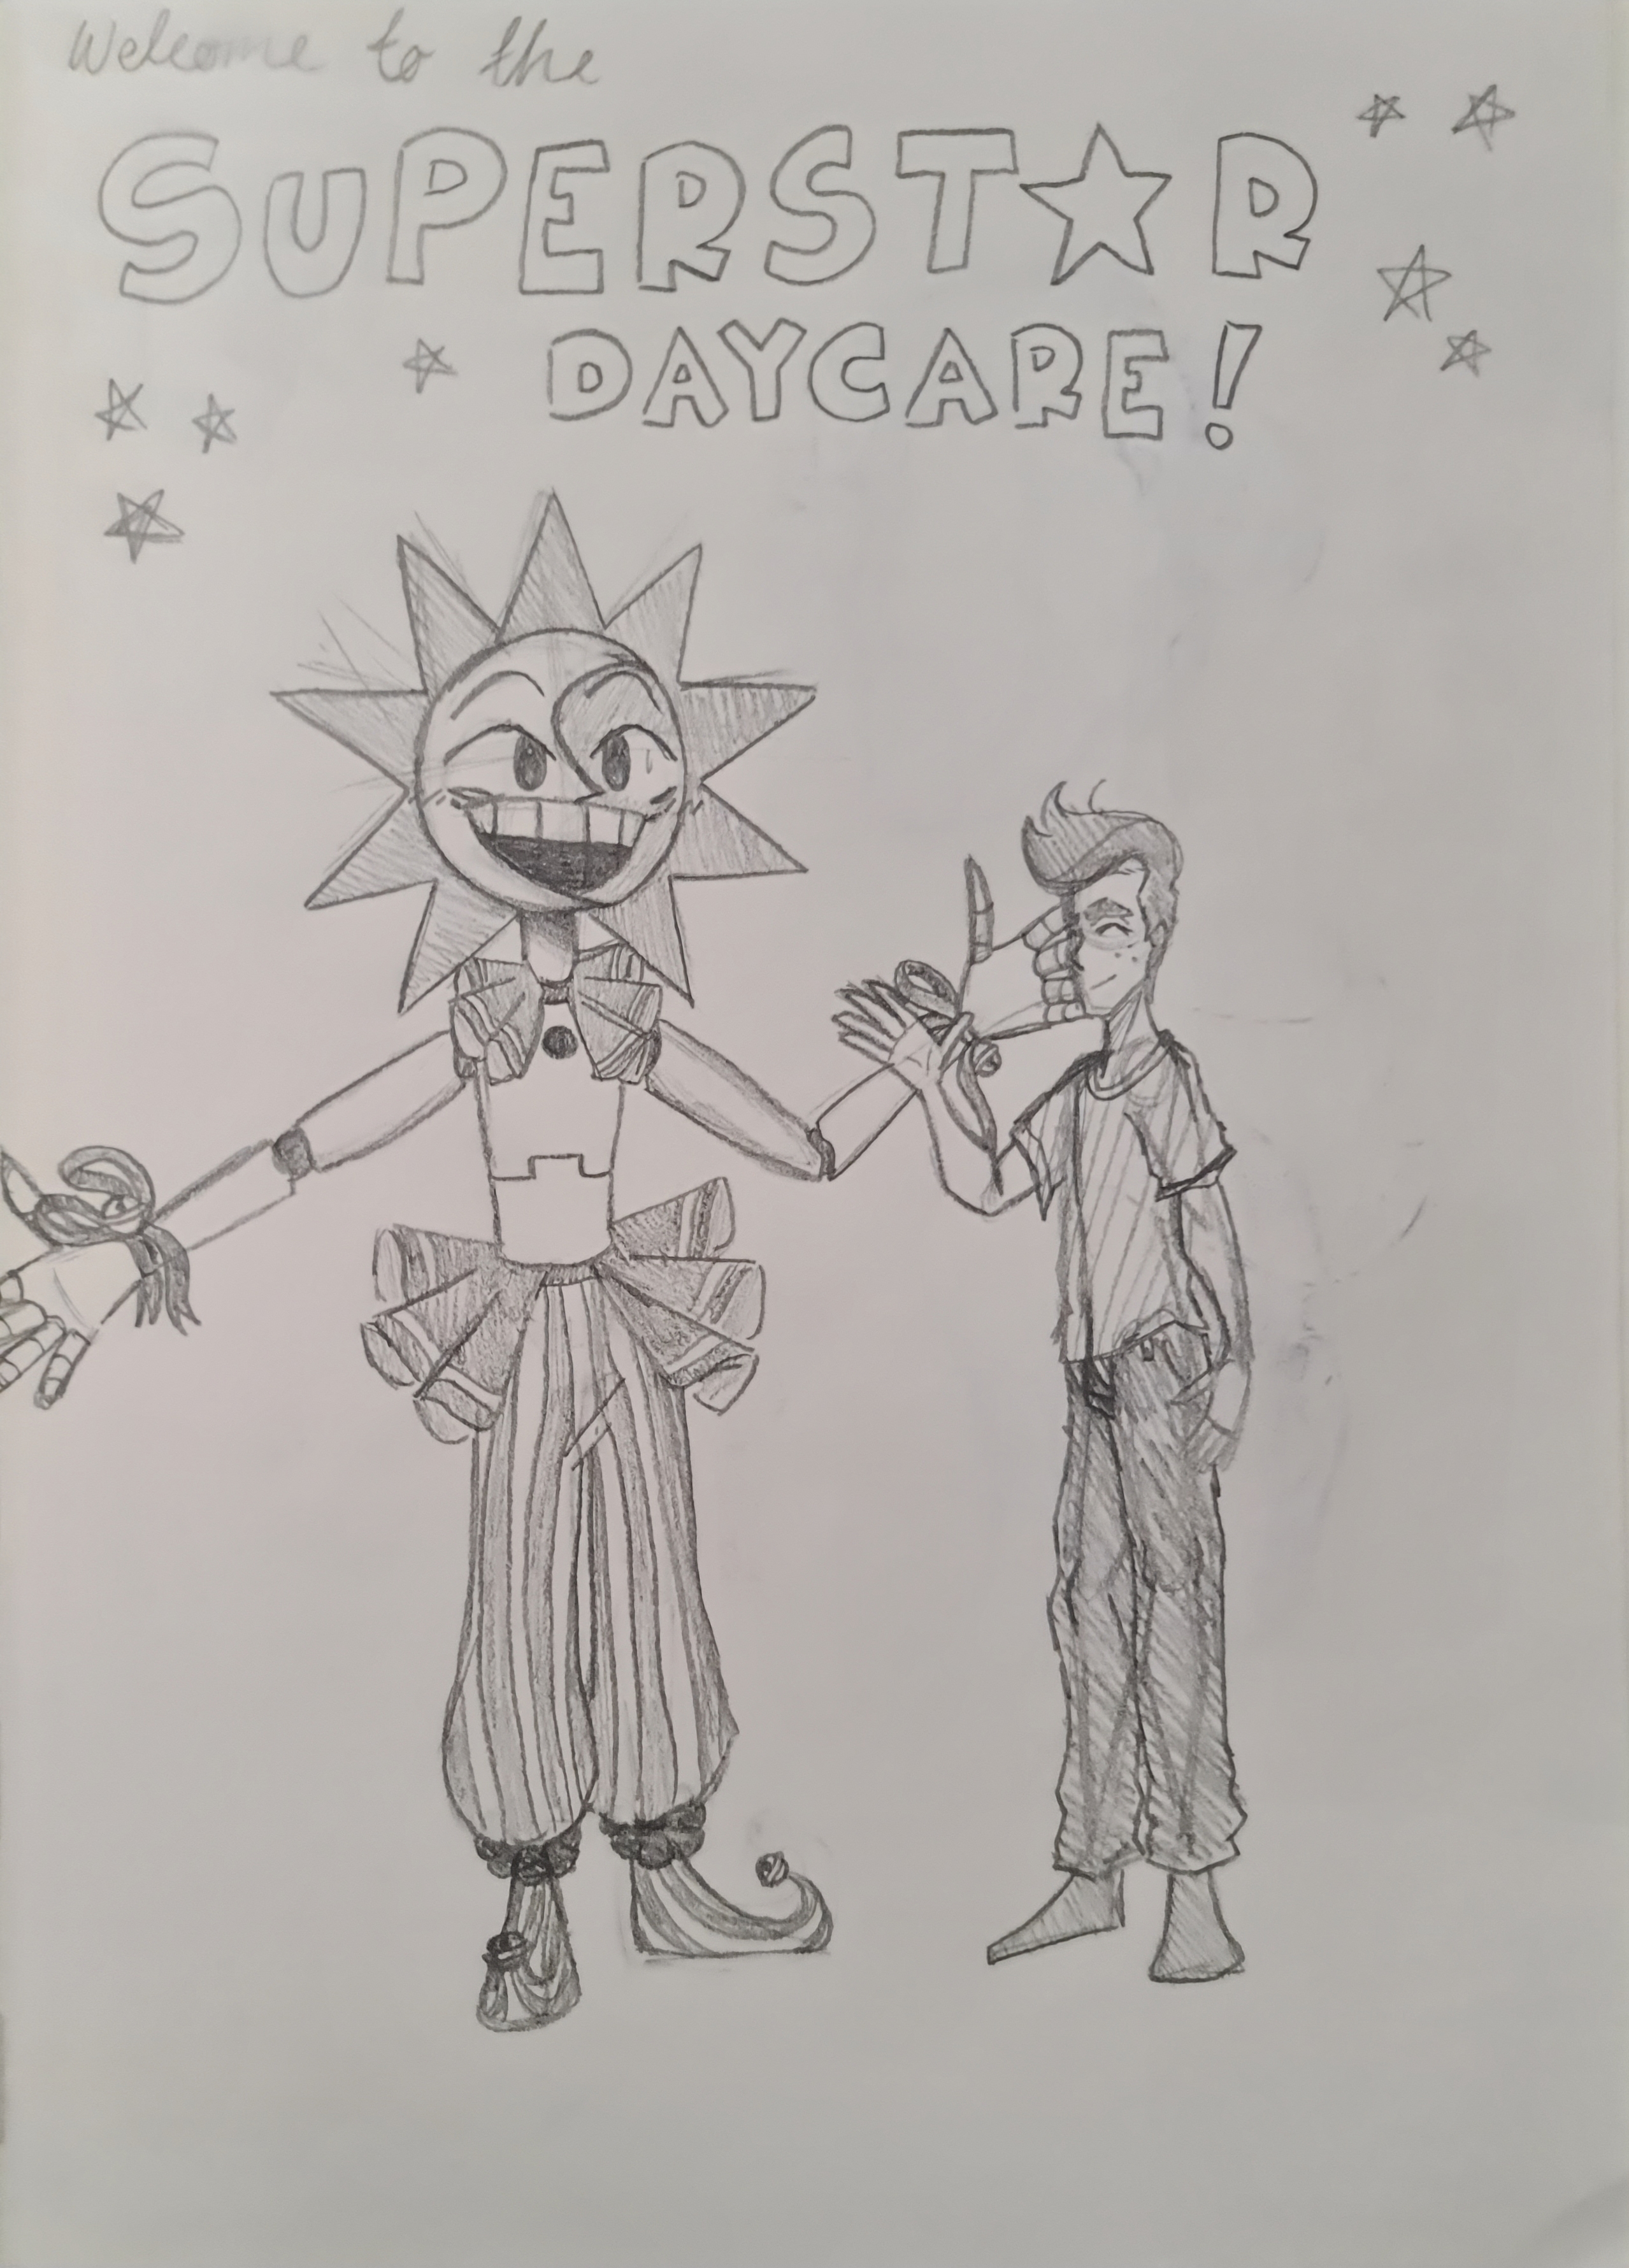 Welcome to the
SUPERST★R
DAYCARE!